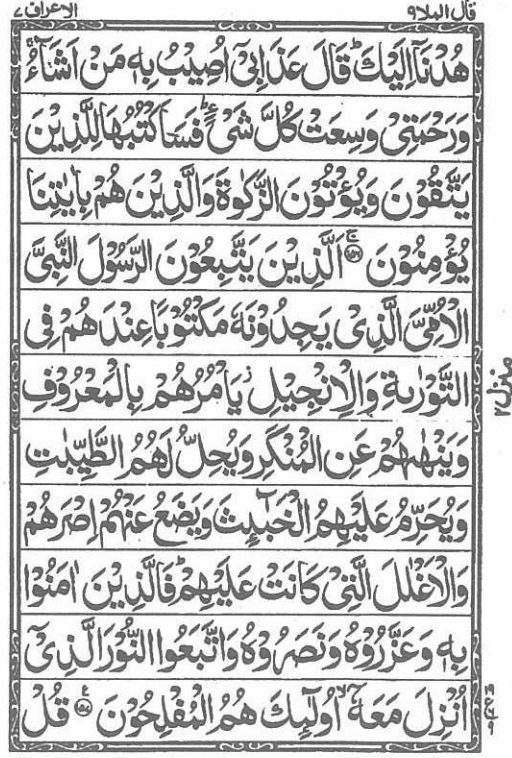 قال الملا ٩
الاعراف ٧
هُدْنَآ اِلَيْكَ ؕ قَالَ عَذَابِیْۤ اُصِیْبُ بِهٖ مَنْ اَشَآءُ ۚ
وَرَحْمَتِیْ وَسِعَتْ كُلَّ شَیْءٍ ؕ فَسَاَكْتُبُهَا لِلَّذِیْنَ
یَتَّقُوْنَ وَیُؤْتُوْنَ الزَّكٰوةَ وَالَّذِیْنَ هُمْ بِاٰیٰتِنَا
یُؤْمِنُوْنَ ۚ۝۱۵۶ اَلَّذِیْنَ یَتَّبِعُوْنَ الرَّسُوْلَ النَّبِیَّ
الْاُمِّیَّ الَّذِیْ یَجِدُوْنَهٗ مَكْتُوْبًا عِنْدَهُمْ فِی
التَّوْرٰىةِ وَالْاِنْجِیْلِ ؗ یَاْمُرُهُمْ بِالْمَعْرُوْفِ
وَیَنْهٰىهُمْ عَنِ الْمُنْكَرِ وَیُحِلُّ لَهُمُ الطَّیِّبٰتِ
وَیُحَرِّمُ عَلَیْهِمُ الْخَبٰٓىِٕثَ وَیَضَعُ عَنْهُمْ اِصْرَهُمْ
وَالْاَغْلٰلَ الَّتِیْ كَانَتْ عَلَیْهِمْ ؕ فَالَّذِیْنَ اٰمَنُوْا
بِهٖ وَعَزَّرُوْهُ وَنَصَرُوْهُ وَاتَّبَعُوا النُّوْرَ الَّذِیْۤ
اُنْزِلَ مَعَهٗۤ ۙ اُولٰٓىِٕكَ هُمُ الْمُفْلِحُوْنَ ۠۝۱۵۷ قُلْ
منزل ۲